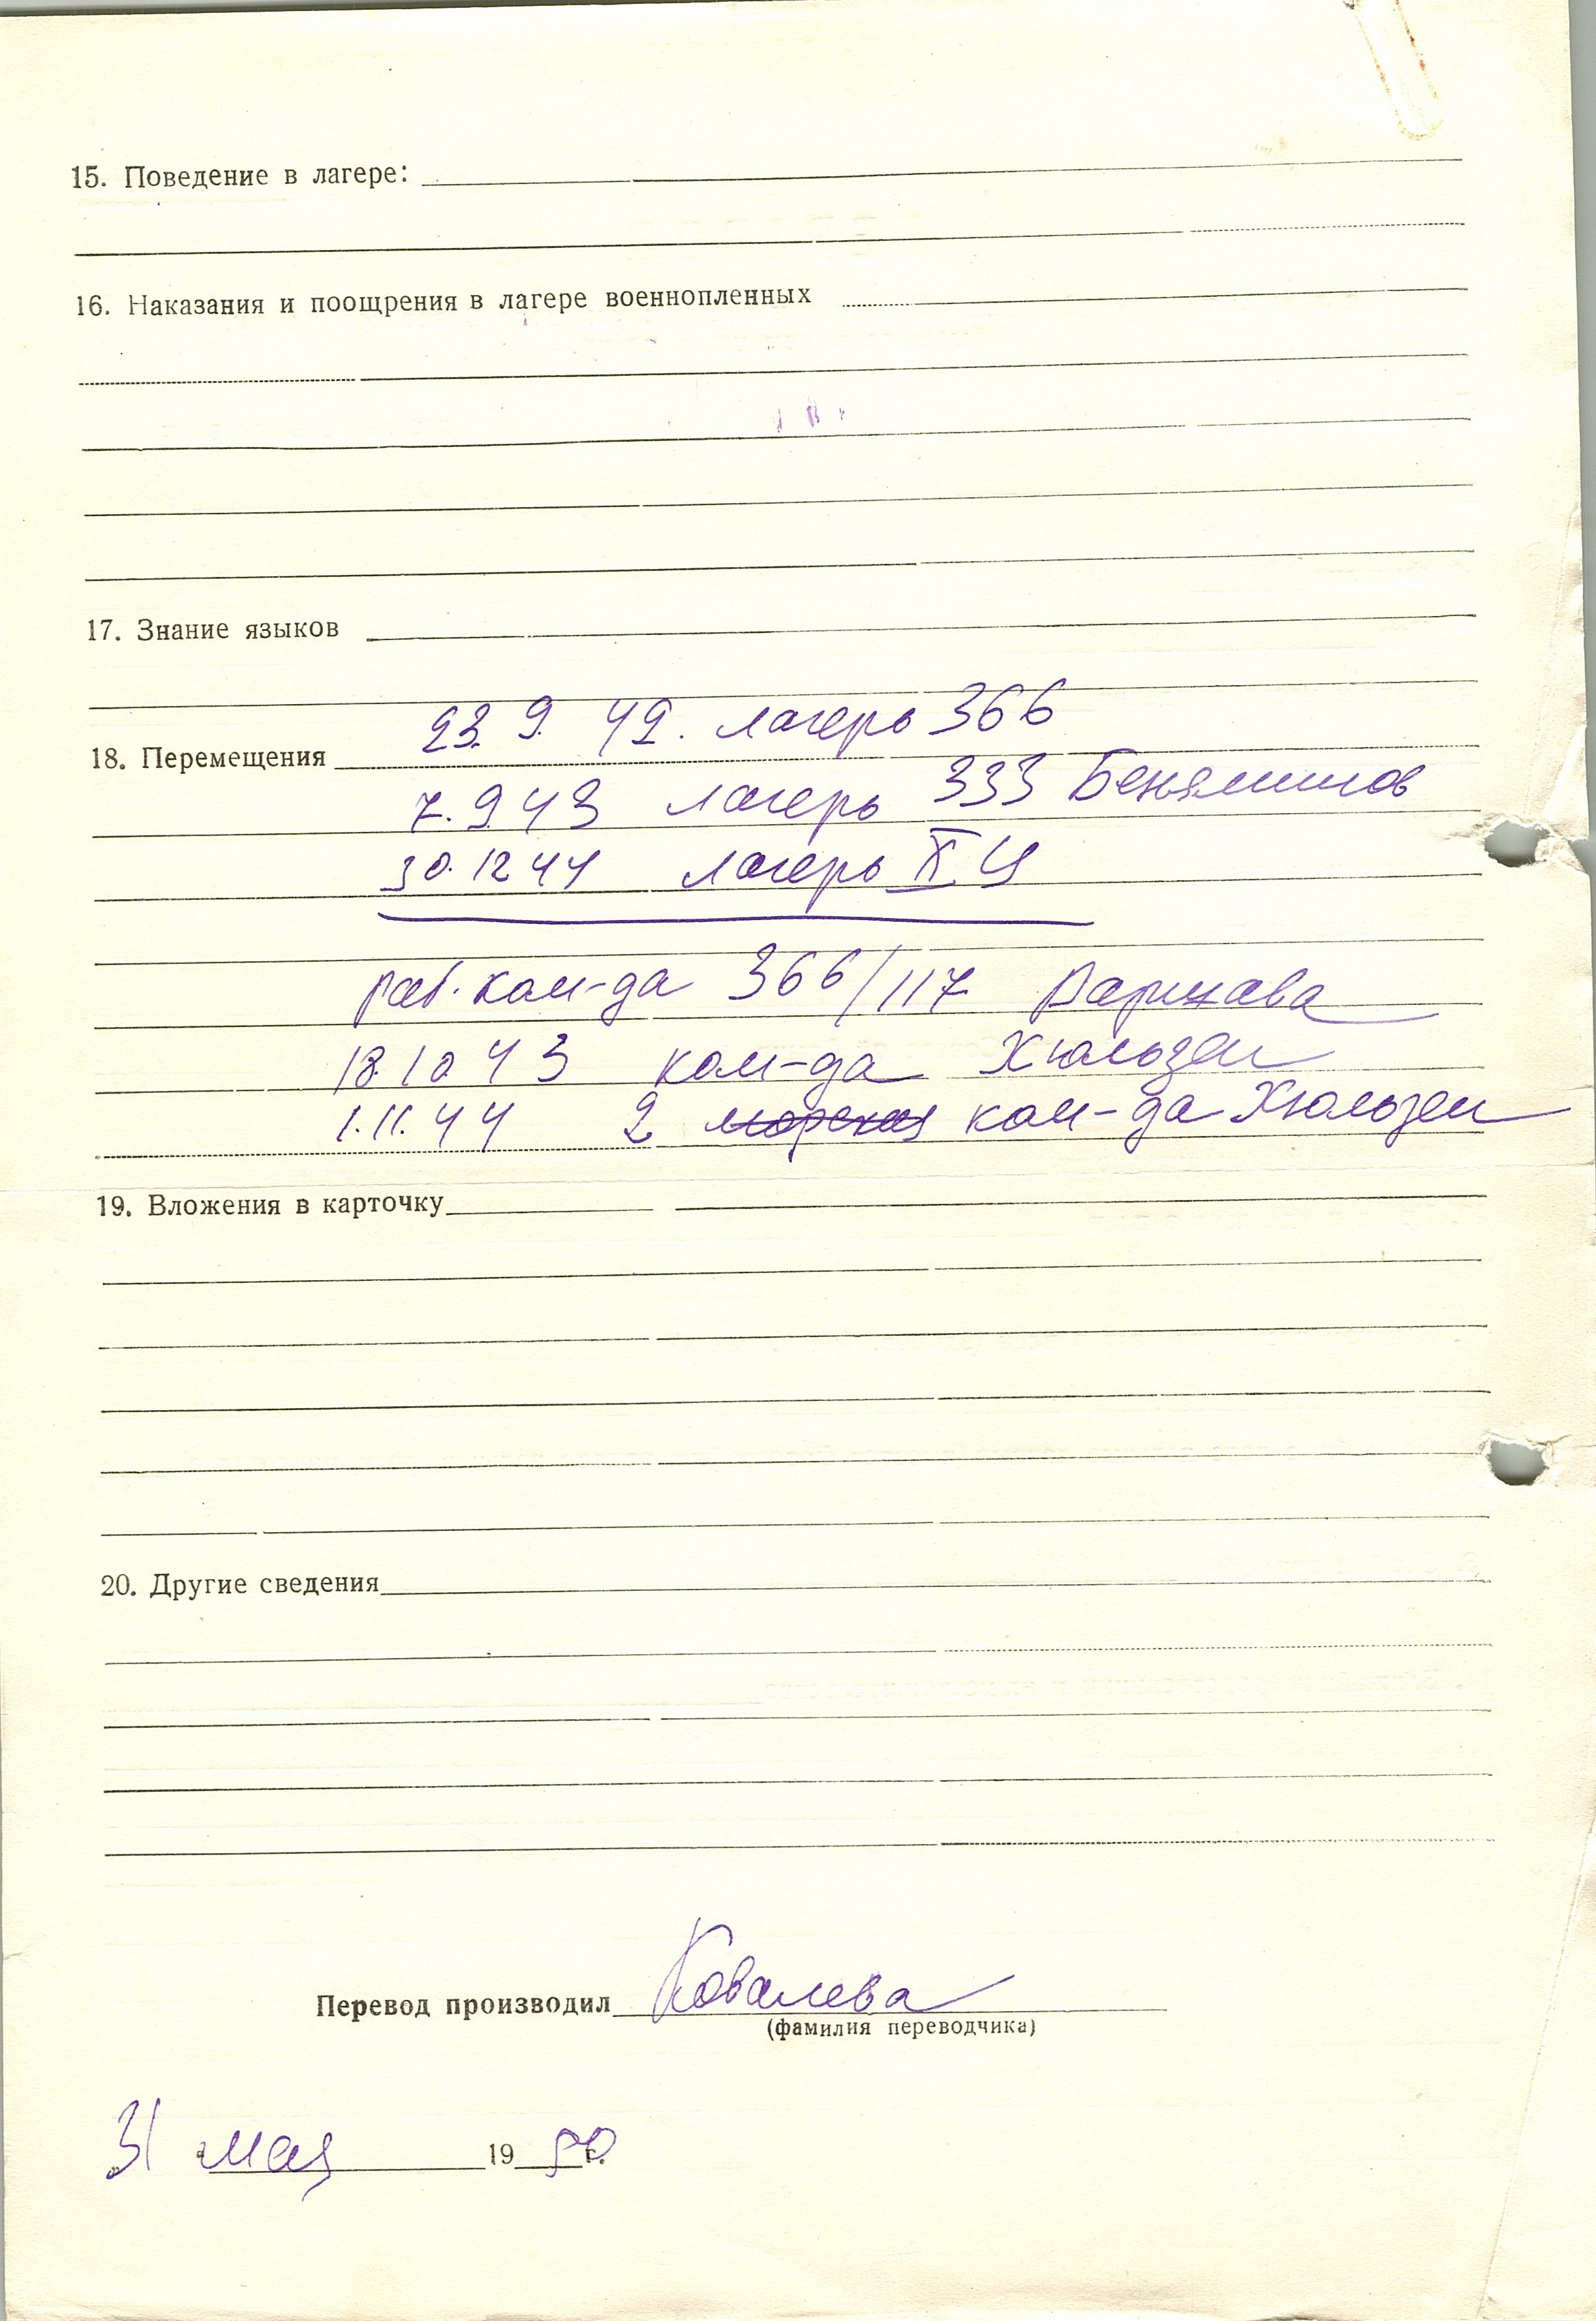 15. Поведение в лагере:
16. Наказания и поощрения в лагере военнопленных
17. Знание языков
23. 9. 42. лагерь 366
18. Перемещения
7. 9 43 лагерь 333 Беньяминов
30. 12 44 лагерь X Ц
раб. ком-да 366/117 Варшава
18 10 43 ком-да Хюльзен
1. 11. 44 2 морская ком-да Хюльзен
19. Вложения в карточку
20. Другие сведения
Перевод производил Ковалева
(фамилия переводчика)
31 мая 1950 г.